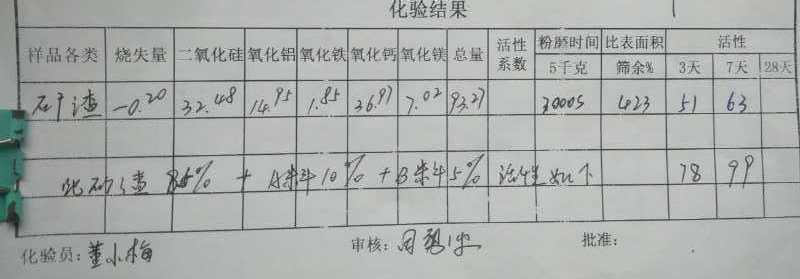 化验结果
样品各类 烧失量 二氧化硅 氧化铝 氧化铁 氧化钙 氧化镁 总量 活性系数 粉磨时间 比表面积 活性
5千克 筛余% 3天 7天 28天
矿渣 -0.20 32.48 14.95 1.85 36.97 7.02 93.27 3000S 423 51 63
此矿渣 85% + A米斗10% + B米斗5% 活性如下 78 99
化验员: 董小梅 审核: 周 批准: